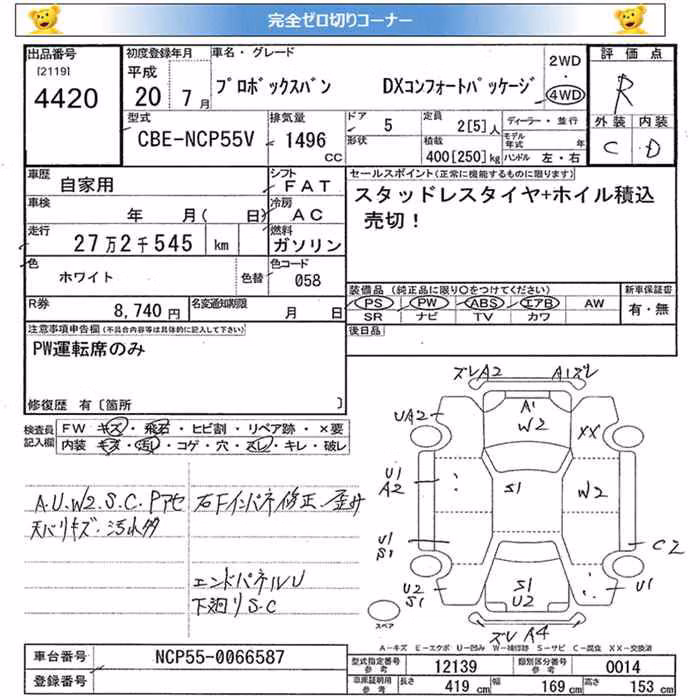 完全ゼロ切りコーナー
出品番号
[2119]
4420
初度登録年月
平成
20 年 7 月
車名・グレード
プロボックスバン DXコンフォートパッケージ
2WD
・
4WD
評価点
R
型式
CBE-NCP55V
排気量
1496
CC
ドア 5
形状
定員 2[5]人
積載
400[250]kg
ディーラー・並行
モデル年式 年
ハンドル 左・右
外装 内装
C D
車歴
自家用
シフト
FAT
車検
年 月( 日)
冷房
AC
走行
27万2千545 km
燃料
ガソリン
色
ホワイト
色替
色コード
058
R券
8,740円
名変通知期限
月 日
セールスポイント(正常に機能するものに限ります)
スタッドレスタイヤ+ホイル積込
売切！
装備品 (純正品に限り○をつけてください)
PS PW ABS エアB AW
SR ナビ TV カワ
新車保証書
有・無
後日品
注意事項申告欄(不具合内容等は具体的に記入して下さい)
PW運転席のみ
修復歴 有〔箇所 〕
検査員
記入欄
FW キズ・飛石・ヒビ割・リペア跡・×要
内装 キズ・汚れ・コゲ・穴・スレ・キレ・破レ
A.U.W2.S.C.Pアセ
天バリキズ・汚れ多
右Fインパネ修正、歪み
エンドパネルU
下廻りS・C
ズレA2 A1ズレ
UA2
A1
W2
XX
U1
A2
S1
W2
U1
S1
C2
U2
S1
S1
U2
U1
ズレA4
スペア
A－キズ E－エクボ U－凹み W－補修跡 S－サビ C－腐食 XX－交換済
車台番号
NCP55-0066587
登録番号
型式指定番号
参考
12139
類別区分番号
参考
0014
車庫証明用
参考
長さ 419 cm
幅 169 cm
高さ 153 cm